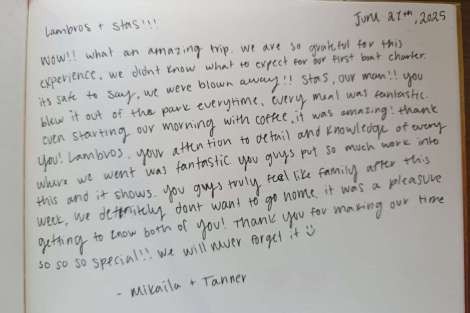 Lambros + Stas!!!
June 27th, 2025
Wow!! what an amazing trip. we are so grateful for this
experience. we didnt know what to expect for our first boat charter.
its safe to say, we were blown away!! Stas, our man!! you
blew it out of the park everytime, every meal was fantastic.
even starting our morning with coffee, it was amazing! thank
you! Lambros. your attention to detail and knowledge of every
where we went was fantastic. you guys put so much work into
this and it shows. you guys truly feel like family after this
week, we definitely dont want to go home. it was a pleasure
getting to know both of you! Thank you for making our time
so so so special!! we will never forget it ☺
- Mikaila + Tanner